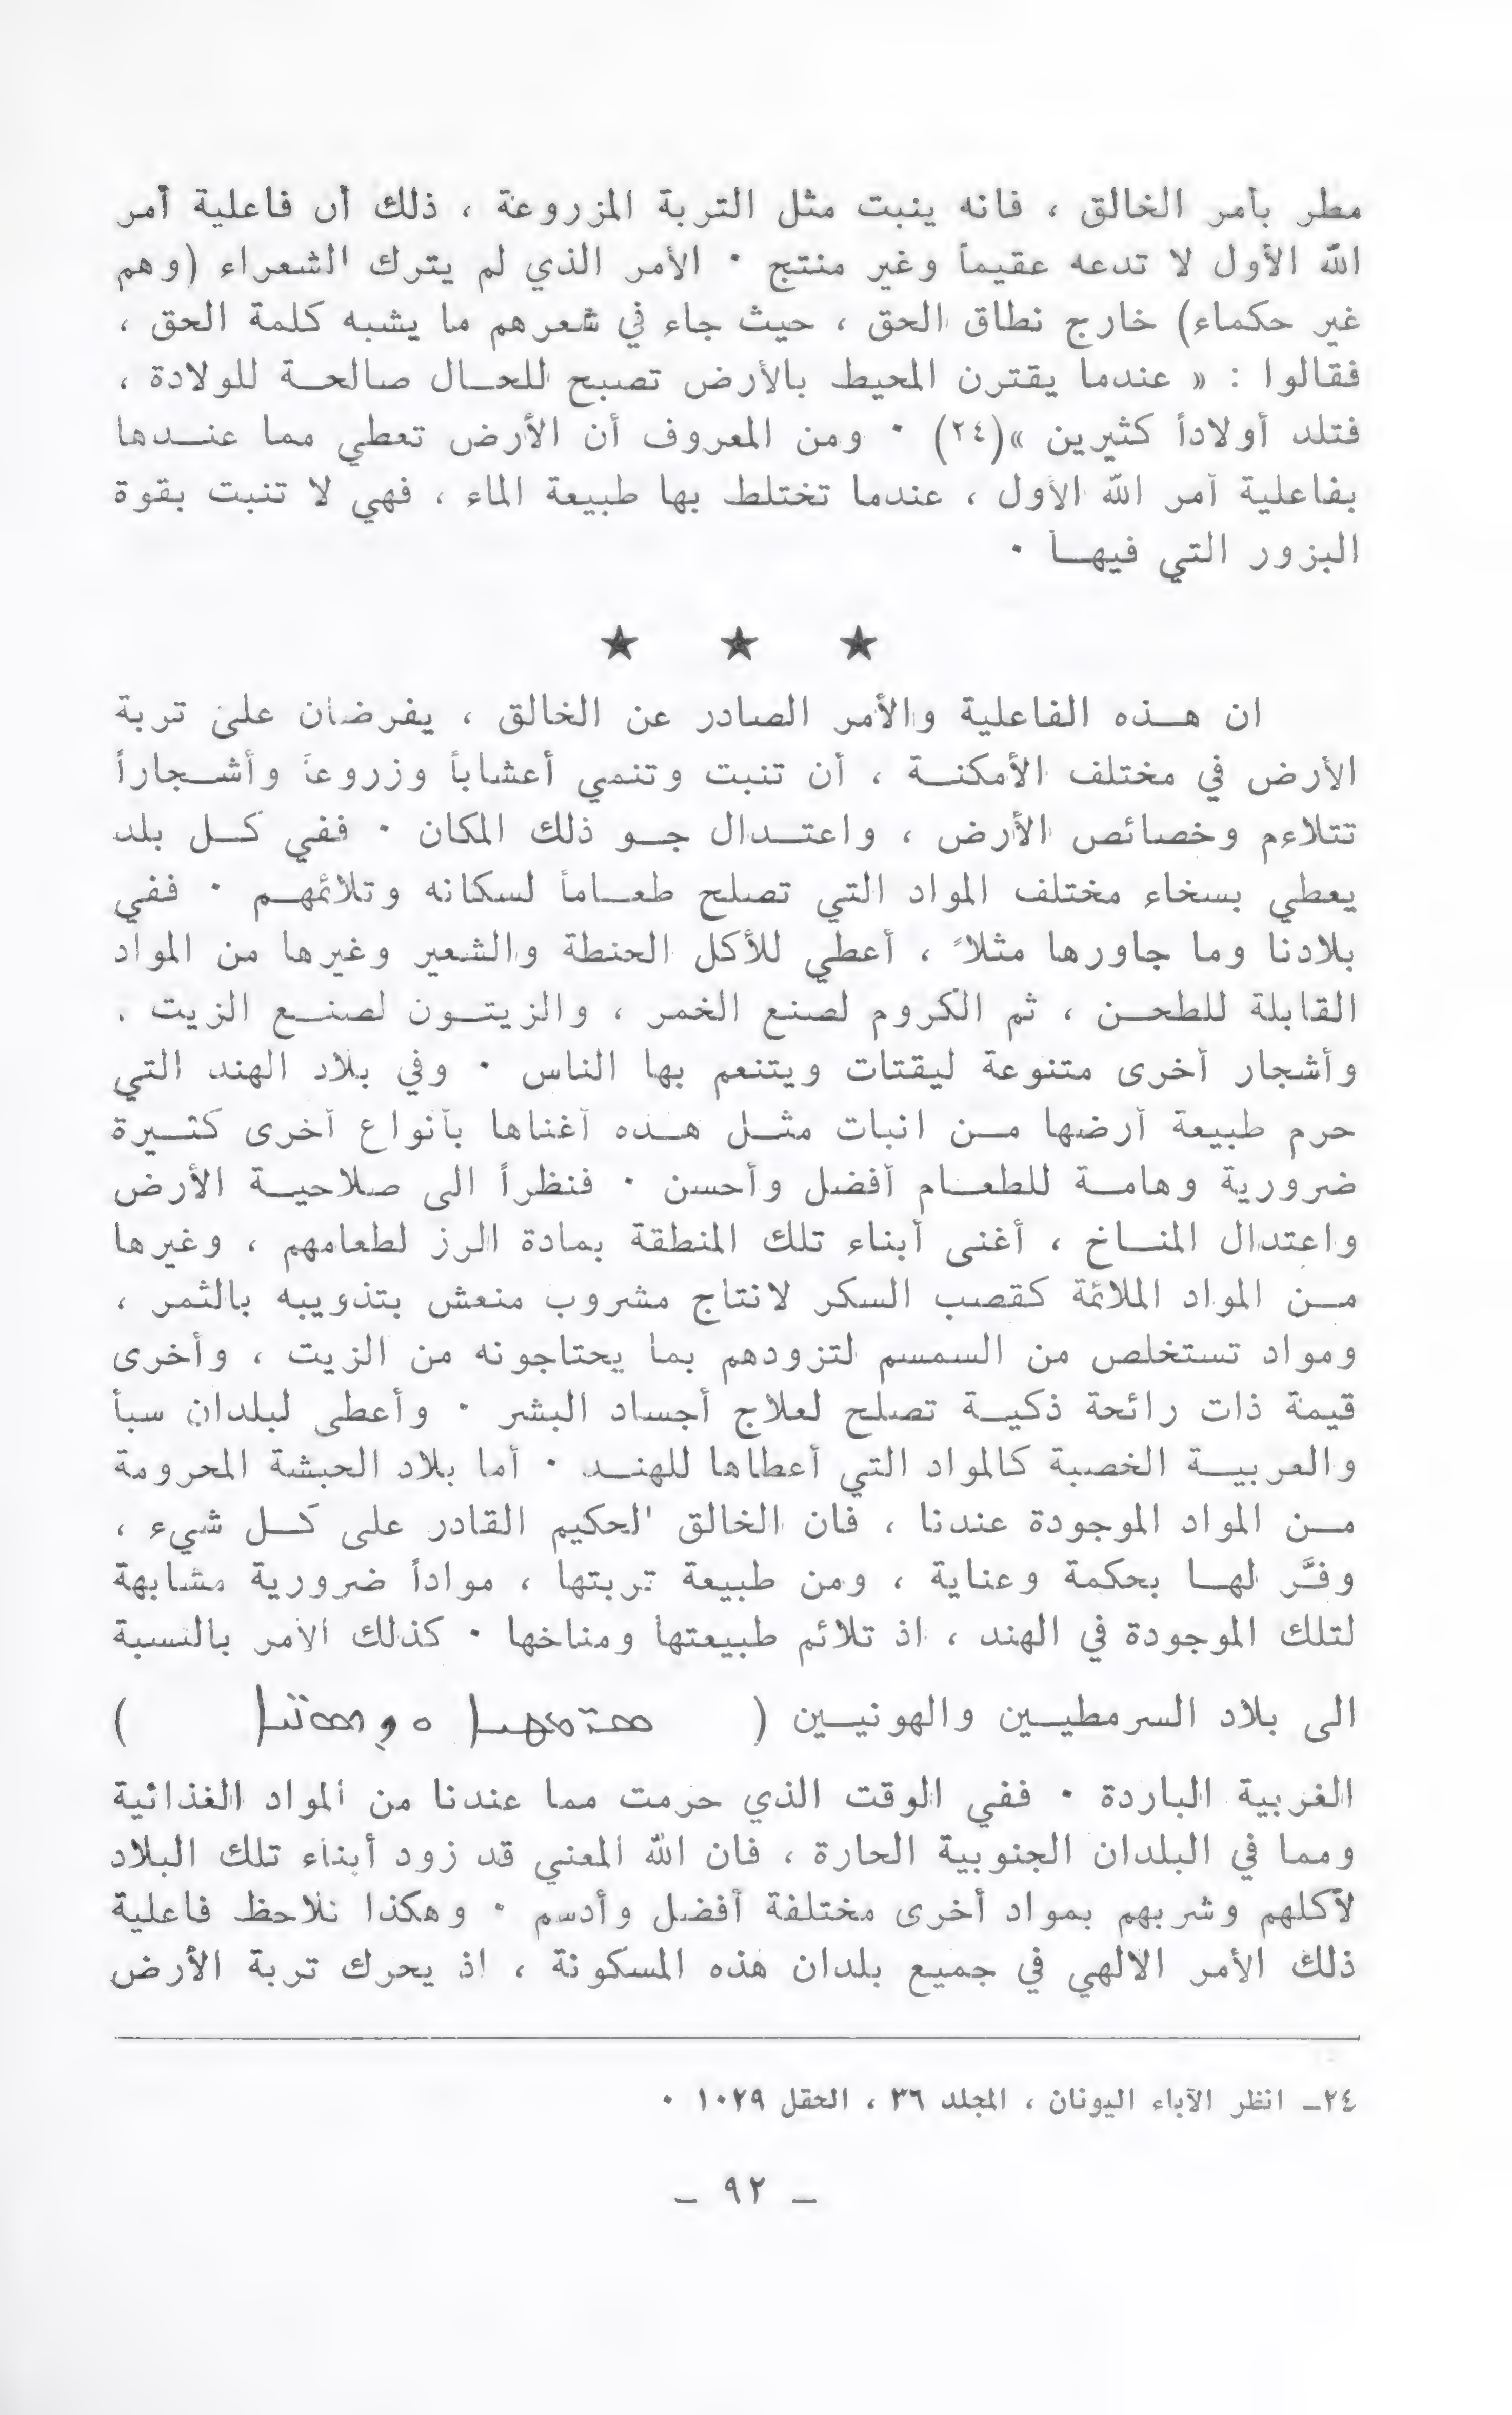 مطر بأمر الخالق ، فانه ينبت مثل التربة المزروعة ، ذلك أن فاعلية أمر
الله الأول لا تدعه عقيماً وغير منتج ٠ الأمر الذي لم يترك الشعراء (وهم
غير حكماء) خارج نطاق الحق ، حيث جاء في شعرهم ما يشبه كلمة الحق ،
فقالوا : « عندما يقترن المحيط بالأرض تصبح للحــال صالحــة للولادة ،
فتلد أولاداً كثيرين »(٢٤) ٠ ومن المعروف أن الأرض تعطي مما عنــدها
بفاعلية أمر الله الأول ، عندما تختلط بها طبيعة الماء ، فهي لا تنبت بقوة
البزور التي فيهــا ٠
★ ★ ★
ان هــذه الفاعلية والأمر الصادر عن الخالق ، يفرضان على تربة
الأرض في مختلف الأمكنــة ، أن تنبت وتنمي أعشاباً وزروعاً وأشــجاراً
تتلاءم وخصائص الأرض ، واعتــدال جــو ذلك المكان ٠ ففي كــل بلد
يعطي بسخاء مختلف المواد التي تصلح طعــاماً لسكانه وتلائمهــم ٠ ففي
بلادنا وما جاورها مثلاً ، أعطي للأكل الحنطة والشعير وغيرها من المواد
القابلة للطحــن ، ثم الكروم لصنع الخمر ، والزيتــون لصنــع الزيت .
وأشجار أخرى متنوعة ليقتات ويتنعم بها الناس ٠ وفي بلاد الهند التي
حرم طبيعة أرضها مــن انبات مثــل هــذه أغناها بأنواع أخرى كثــيرة
ضرورية وهامــة للطعــام أفضل وأحسن ٠ فنظراً الى صلاحيــة الأرض
واعتدال المنــاخ ، أغنى أبناء تلك المنطقة بمادة الرز لطعامهم ، وغيرها
مــن المواد الملائمة كقصب السكر لانتاج مشروب منعش بتذويبه بالثمر ،
ومواد تستخلص من السمسم لتزودهم بما يحتاجونه من الزيت ، وأخرى
قيمة ذات رائحة ذكيــة تصلح لعلاج أجساد البشر ٠ وأعطى لبلدان سبأ
والعربيــة الخصبة كالمواد التي أعطاها للهنــد ٠ أما بلاد الحبشة المحرومة
مــن المواد الموجودة عندنا ، فان الخالق الحكيم القادر على كــل شيء ،
وفَّر لهــا بحكمة وعناية ، ومن طبيعة تربتها ، مواداً ضرورية مشابهة
لتلك الموجودة في الهند ، اذ تلائم طبيعتها ومناخها ٠ كذلك الأمر بالنسبة
الى بلاد السرمطيــين والهونيــين ( )
الغربية الباردة ٠ ففي الوقت الذي حرمت مما عندنا من المواد الغذائية
ومما في البلدان الجنوبية الحارة ، فان الله المعني قد زود أبناء تلك البلاد
لأكلهم وشربهم بمواد أخرى مختلفة أفضل وأدسم ٠ وهكذا نلاحظ فاعلية
ذلك الأمر الالهي في جميع بلدان هذه المسكونة ، اذ يحرك تربة الأرض
٢٤ـ انظر الآباء اليونان ، المجلد ٣٦ ، الحقل ١٠٢٩ ٠
ـ ٩٢ ـ